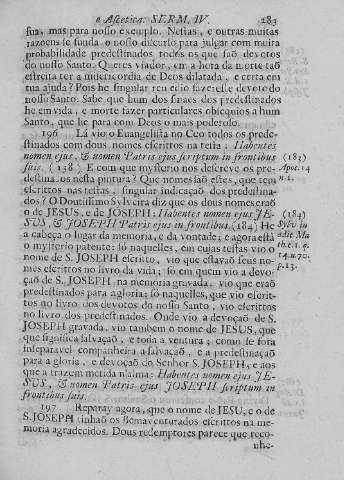 e Ascetica. SERM. IV. 283
sua, mas para nosso exemplo. Nestas, e outras muitas
razoens se funda o nosso discurso para julgar com muita
probabilidade predestinados todos os que saõ devotos
do nosso Santo. Queres viador, em a hora da morte taõ
estreita ter a misericordia de Deos dilatada, e certa em
tua ajuda? Pois he singular remedio fazeresle devoto do
nosso Santo. Sabe que hum dos sinaes dos predestinados
he em vida, e morte fazer particulares obsequios a hum
Santo, que he para com Deos o mais poderoso.
196 Lá vio o Euangelista no Ceo todos os prede-
stinados com dous nomes escrittos na testa: Habentes
nomen ejus, & nomen Patris ejus scriptum in frontibus
suis. (183) E com que mysterio nos descreve os pre-
destina os nesta pintura? Que nomes saõ estes, que tem
escrittos nas testas, singular indicaçaõ dos predestina-
dos? O Doutissimo Sylveira diz que os dous nomes eraõ
o de JESUS, e de JOSEPH: Habentes nomen ejus JE-
SUS, & JOSEPH Patris ejus in frontibus. (184) He
a cabeça o lugar da memoria, e da vontade; e agora está
o mysterio patente: só naquelles, em cujas testas vio o
nome de S. JOSEPH escrito, vio que estavaõ seus no-
mes escrittos no livro da vida; só em quem vio a devo-
çaõ de S. JOSEPH na memoria gravada, vio que eraõ
predestinados para a gloria; só naquelles, que vio escrit-
tos no livro dos devotos do nosso Santo, vio escrittos
no livro dos predestinados. Onde vio a devoçaõ de S.
JOSEPH gravada, vio tambem o nome de JESUS, que
que significa salvaçaõ, e toda a ventura; como se fora
inseparavel companheira a salvaçaõ, e a predestinaçaõ
para a gloria, e devoçaõ do Senhor S. JOSEPH, e aos
que a trazem metida n'alma: Habentes nomen ejus JE-
SUS, & nomen Patris ejus JOSEPH scriptum in
frontibus suis.
197 Reparay agora, que o nome de JESU, e o de
S. JOSEPH tinhaõ os Bemaventurados escrittos na me-
moria agradecidos. Dous redemptores parece que reco-
nhe-
(183)
Apoc. 14
n. 1.
(184)
Sylv. in
addit Ma
th. c. 1. q.
14. n. 70.
p. 13.